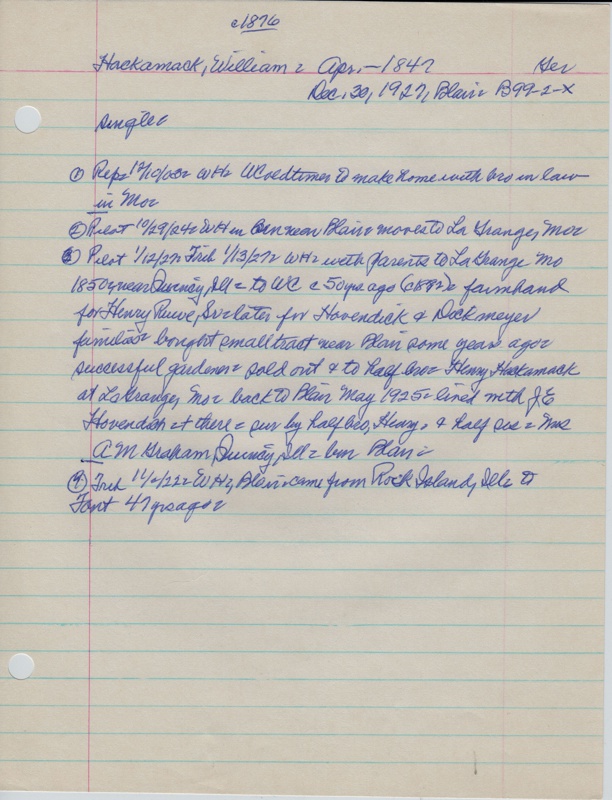 c1876
Hackamack, William = Apr. - 1847 Ger
Dec. 30, 1927, Blair = B99-2-X
single =
① Rep = 12/10/03 = WH = WC oldtimer to make home with bro in law
in Mo =
② Pilot 10/29/24 = WH in ctn near Blair = moves to La Grange, Mo =
③ Pilot 1/12/27 Trib 1/13/27 = WH = with parents to La Grange Mo
1850, near Quincy, Ill = to WC c 50 yrs ago (c = farmhand
for Henry Ruwe, Sr = later for Hovendick & Dockmeyer
families = bought small tract near Blair some years ago =
successful gardener = sold out & to half bro = Henry Hackamack
at La Grange, Mo = back to Blair May 1925 = lived with J E
Hovendick & there = sur by half bro, Henry, & half sis = Mrs
A M Graham, Quincy, Ill = bur Blair =
④ Trib = WH, Blair = came from Rock Island, Ill = to
Font 47 yrs ago =